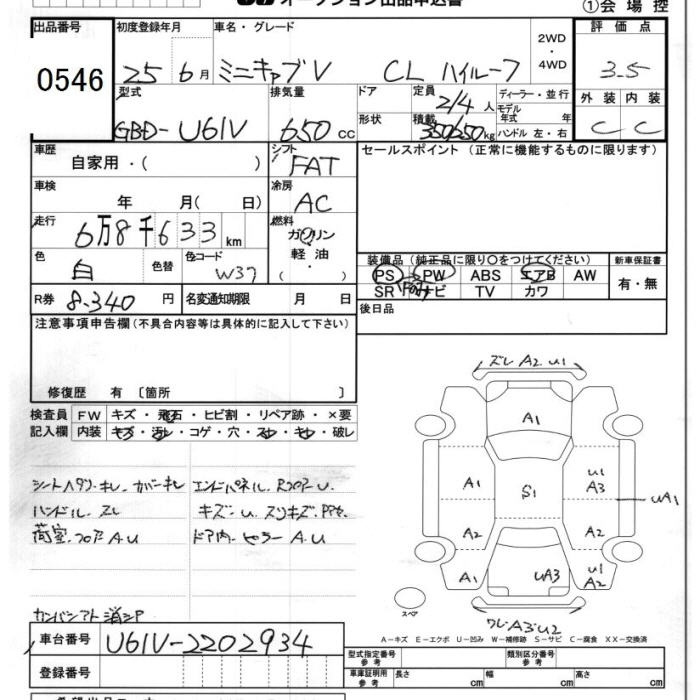 オークション出品申込書
①会場控
出品番号 0546
初度登録年月 25 6月
車名・グレード ミニキャブV CL ハイルーフ
2WD・4WD
評価点 3.5
型式 GBD-U61V
排気量 650 cc
ドア 形状
定員 2/4 人
積載 350/250 kg
ディーラー・並行
モデル年式 年
ハンドル 左・右
外装 C 内装 C
車歴 自家用・( )
シフト FAT
セールスポイント (正常に機能するものに限ります)
車検 年 月( 日)
冷房 AC
走行 6万8千633 km
燃料 ガソリン 軽油・( )
色 白 色替 色コード W37
装備品 (純正品に限り○をつけてください)
新車保証書
PS PW ABS エアB AW
SR ナビ TV カワ
有・無
R券 8,340 円
名変通知期限 月 日
後日品
注意事項申告欄 (不具合内容等は具体的に記入して下さい)
修復歴 有 〔箇所 〕
検査員 FW キズ・飛石・ヒビ割・リペア跡・×要
記入欄 内装 キズ・汚レ・コゲ・穴・スレ・キレ・破レ
シートヘタリ・キレ・カバーキレ
エンドパネル、Rフロアー U.
ハンドル スレ
キズ・U.スリキズ、
荷室、フロア A.U
ドア内・ピラー A.U
カンバンアト 消シP
ズレ A2 U1
A1
A1 S1 U1 A3
UA1
A2 A2
A1 UA3 U1 A2
ワレ A3 U2
スペア
A－キズ E－エクボ U－凹み W－補修跡 S－サビ C－腐食 XX－交換済
車台番号 U61V-2202934
型式指定番号 参考
類別区分番号 参考
登録番号
車庫証明用 参考 長さ cm 幅 cm 高さ cm